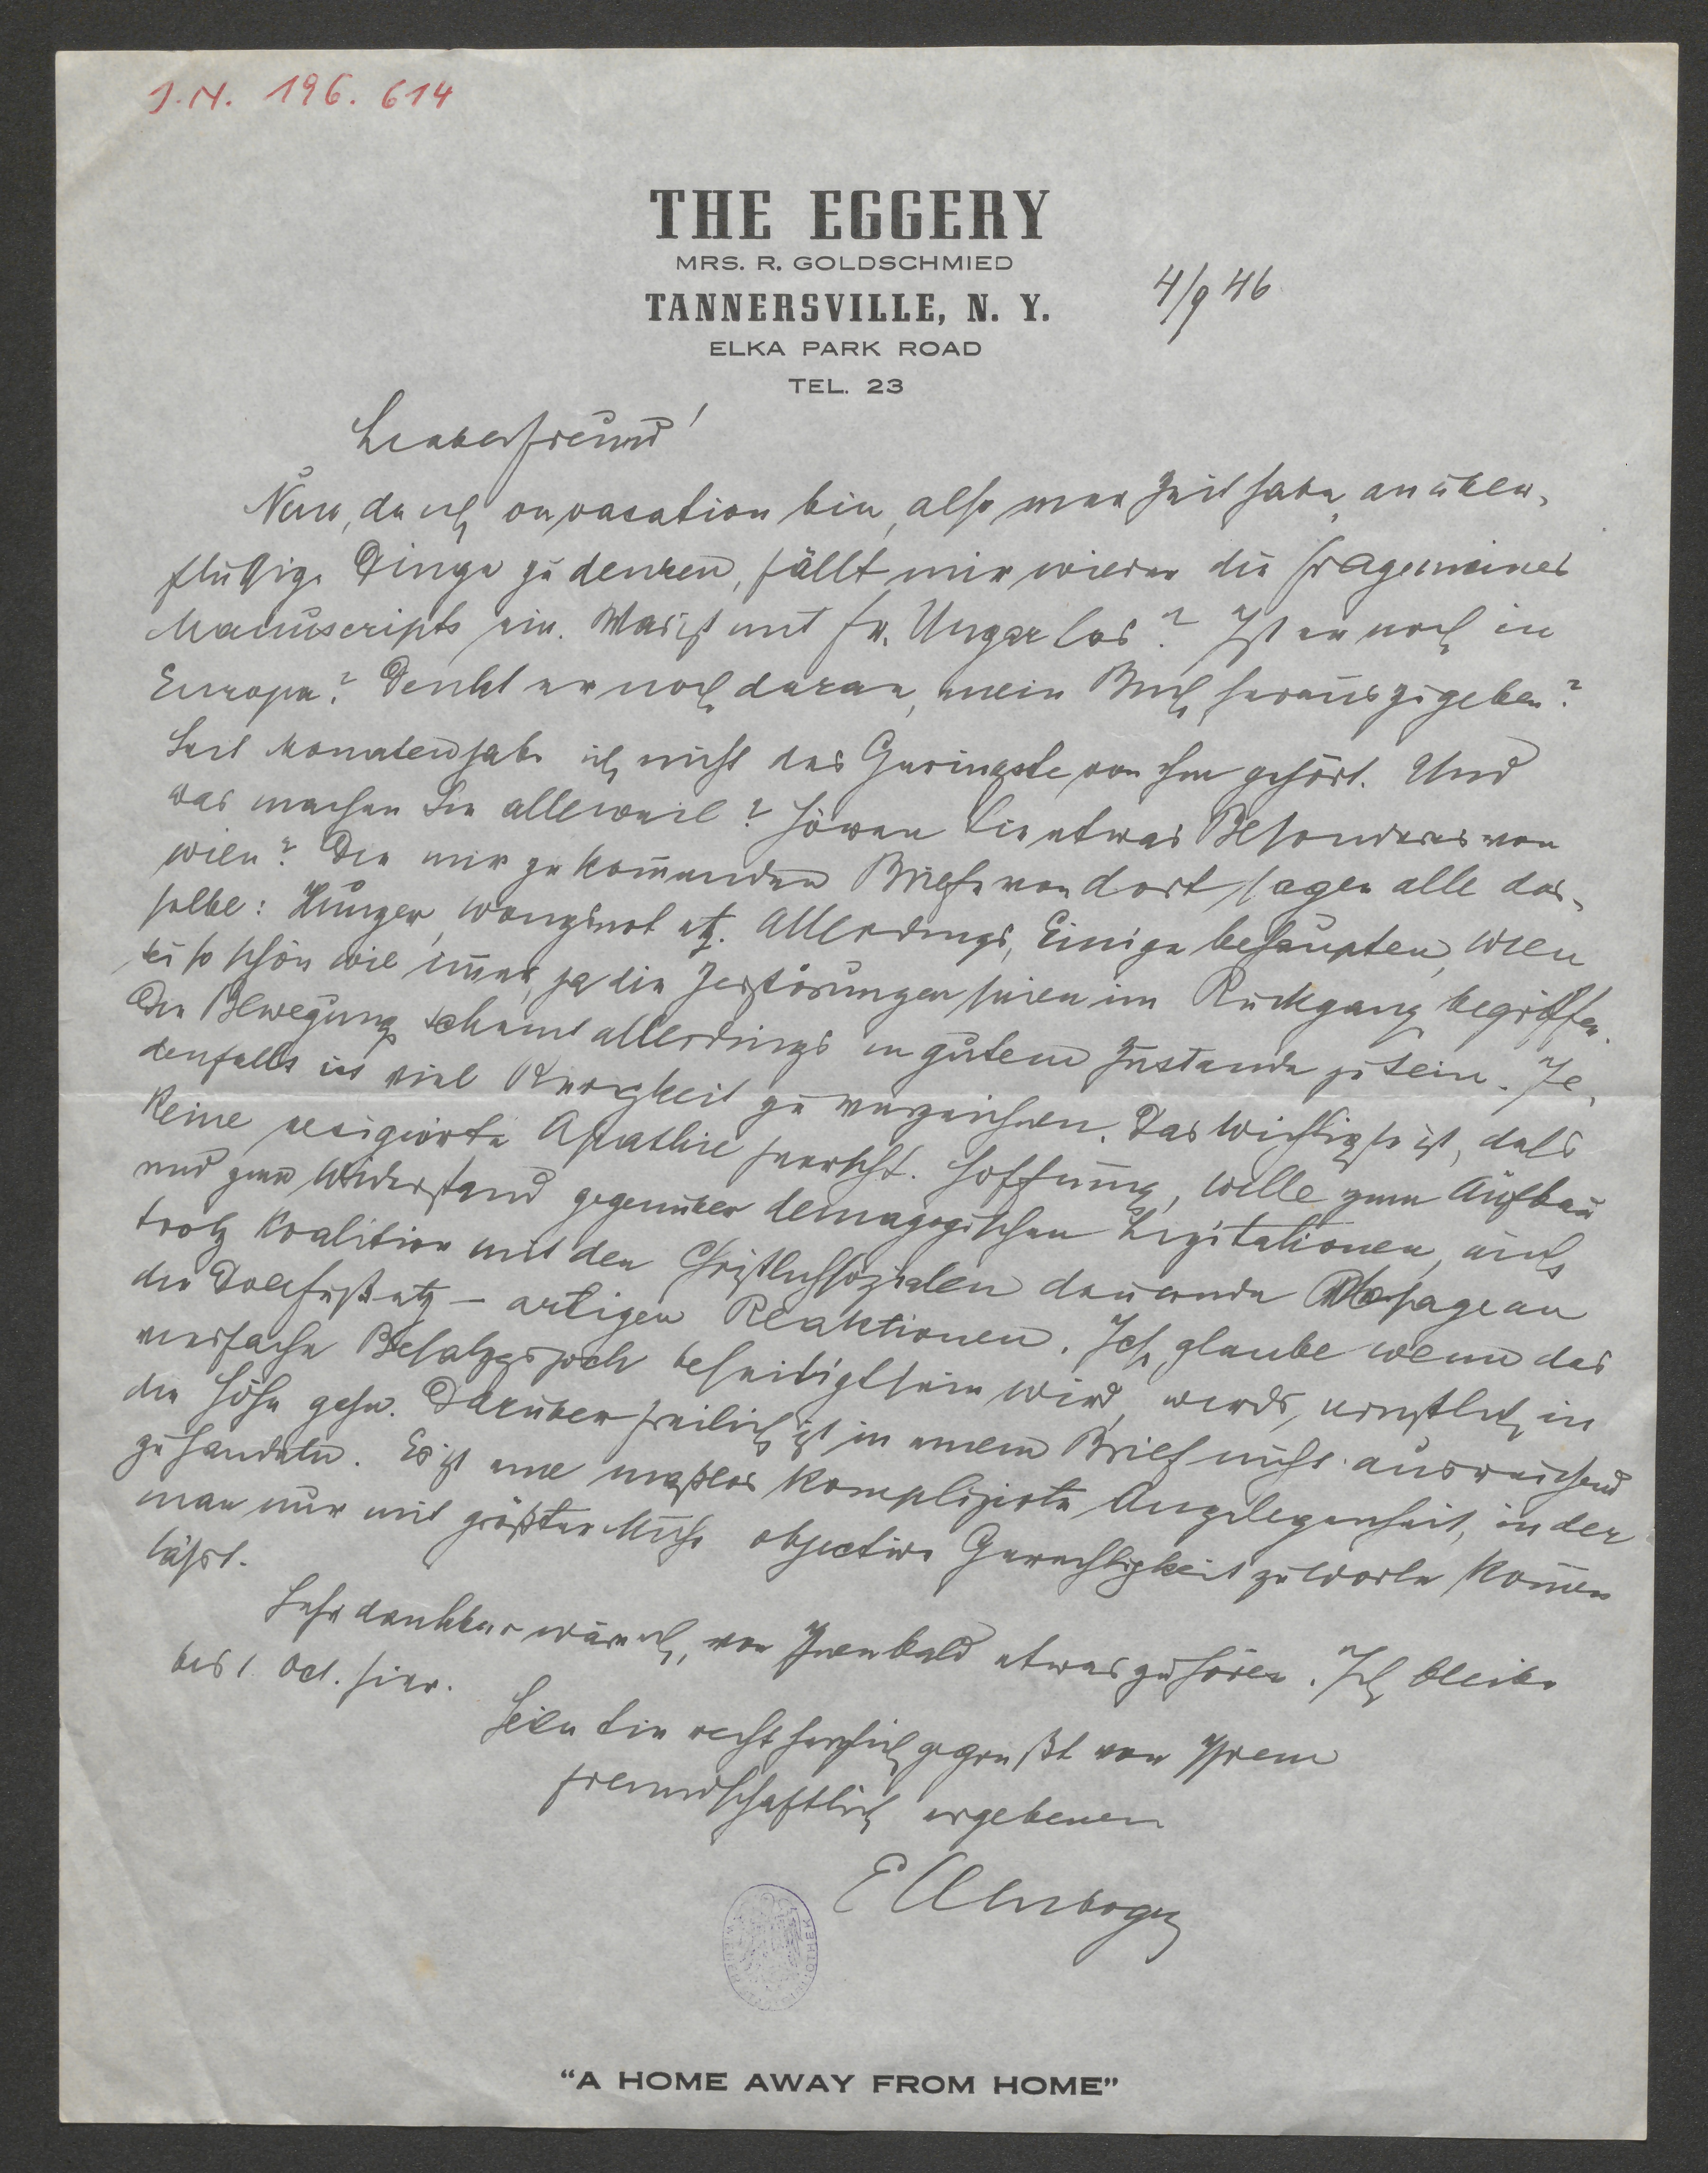 J.N. 196.614
THE EGGERY
MRS. R. GOLDSCHMIED
TANNERSVILLE, N. Y.
4/9 46
ELKA PARK ROAD
TEL. 23
Lieber Freund!
Nun, da ich on vacation bin, also mar Zeit habe, an über-
flüßige Dinge zu denken, fällt mir wieder die Frage meines
Manuscripts ein. Was ist mit Fr. Ungar los? Ist er noch in
Europa? Denkt er noch daran, mein Buch herauszugeben?
Seit Monaten habe ich nicht das Geringste von ihm gehört. Und
was machen Sie alleweil? Hören Sie etwas Besonderes von
Wien? Die mir zukommenden Briefe von dort sagen alle das-
selbe: Hunger, Wohngsnot etz. Allerdings, Einige behaupten, Wien
sei so schön wie immer, ja die Zerstörungen seien im Rückgang begriffen.
Die Bewegung scheint allerdings in gutem Zustande zu sein. Je-
denfalls ist viel Rührigkeit zu verzeichnen. Das Wichtigste ist, daß
keine resignierte Apathie herrscht. Hoffnung, Wille zum Aufbau
und zum Widerstand gegenüber demagogischen Agitationen, auch
trotz Koalition mit den Christlichsozialen dauernde Absage an
die Dollfuß etz - artigen Reaktionen. Ich glaube wenn das
vierfache Besatzgsjoch beseitigt sein wird, wirds ernstlich in
die Höhe gehn. Darüber freilich ist in einem Brief nicht ausreichend
zu handeln. Es ist eine maßlos komplizirte Angelegenheit, in der
man nur mit größter Mühe objective Gerechtigkeit zu Worte kommen
läßt.
Sehr dankbar wäre ich, von Ihnen bald etwas zu hören. Ich bleibe
bis 1. Oct. hier.
Seien Sie recht herzlich gegrüßt von Ihrem
freundschaftlich ergebenen
Ellenbogen
“A HOME AWAY FROM HOME”